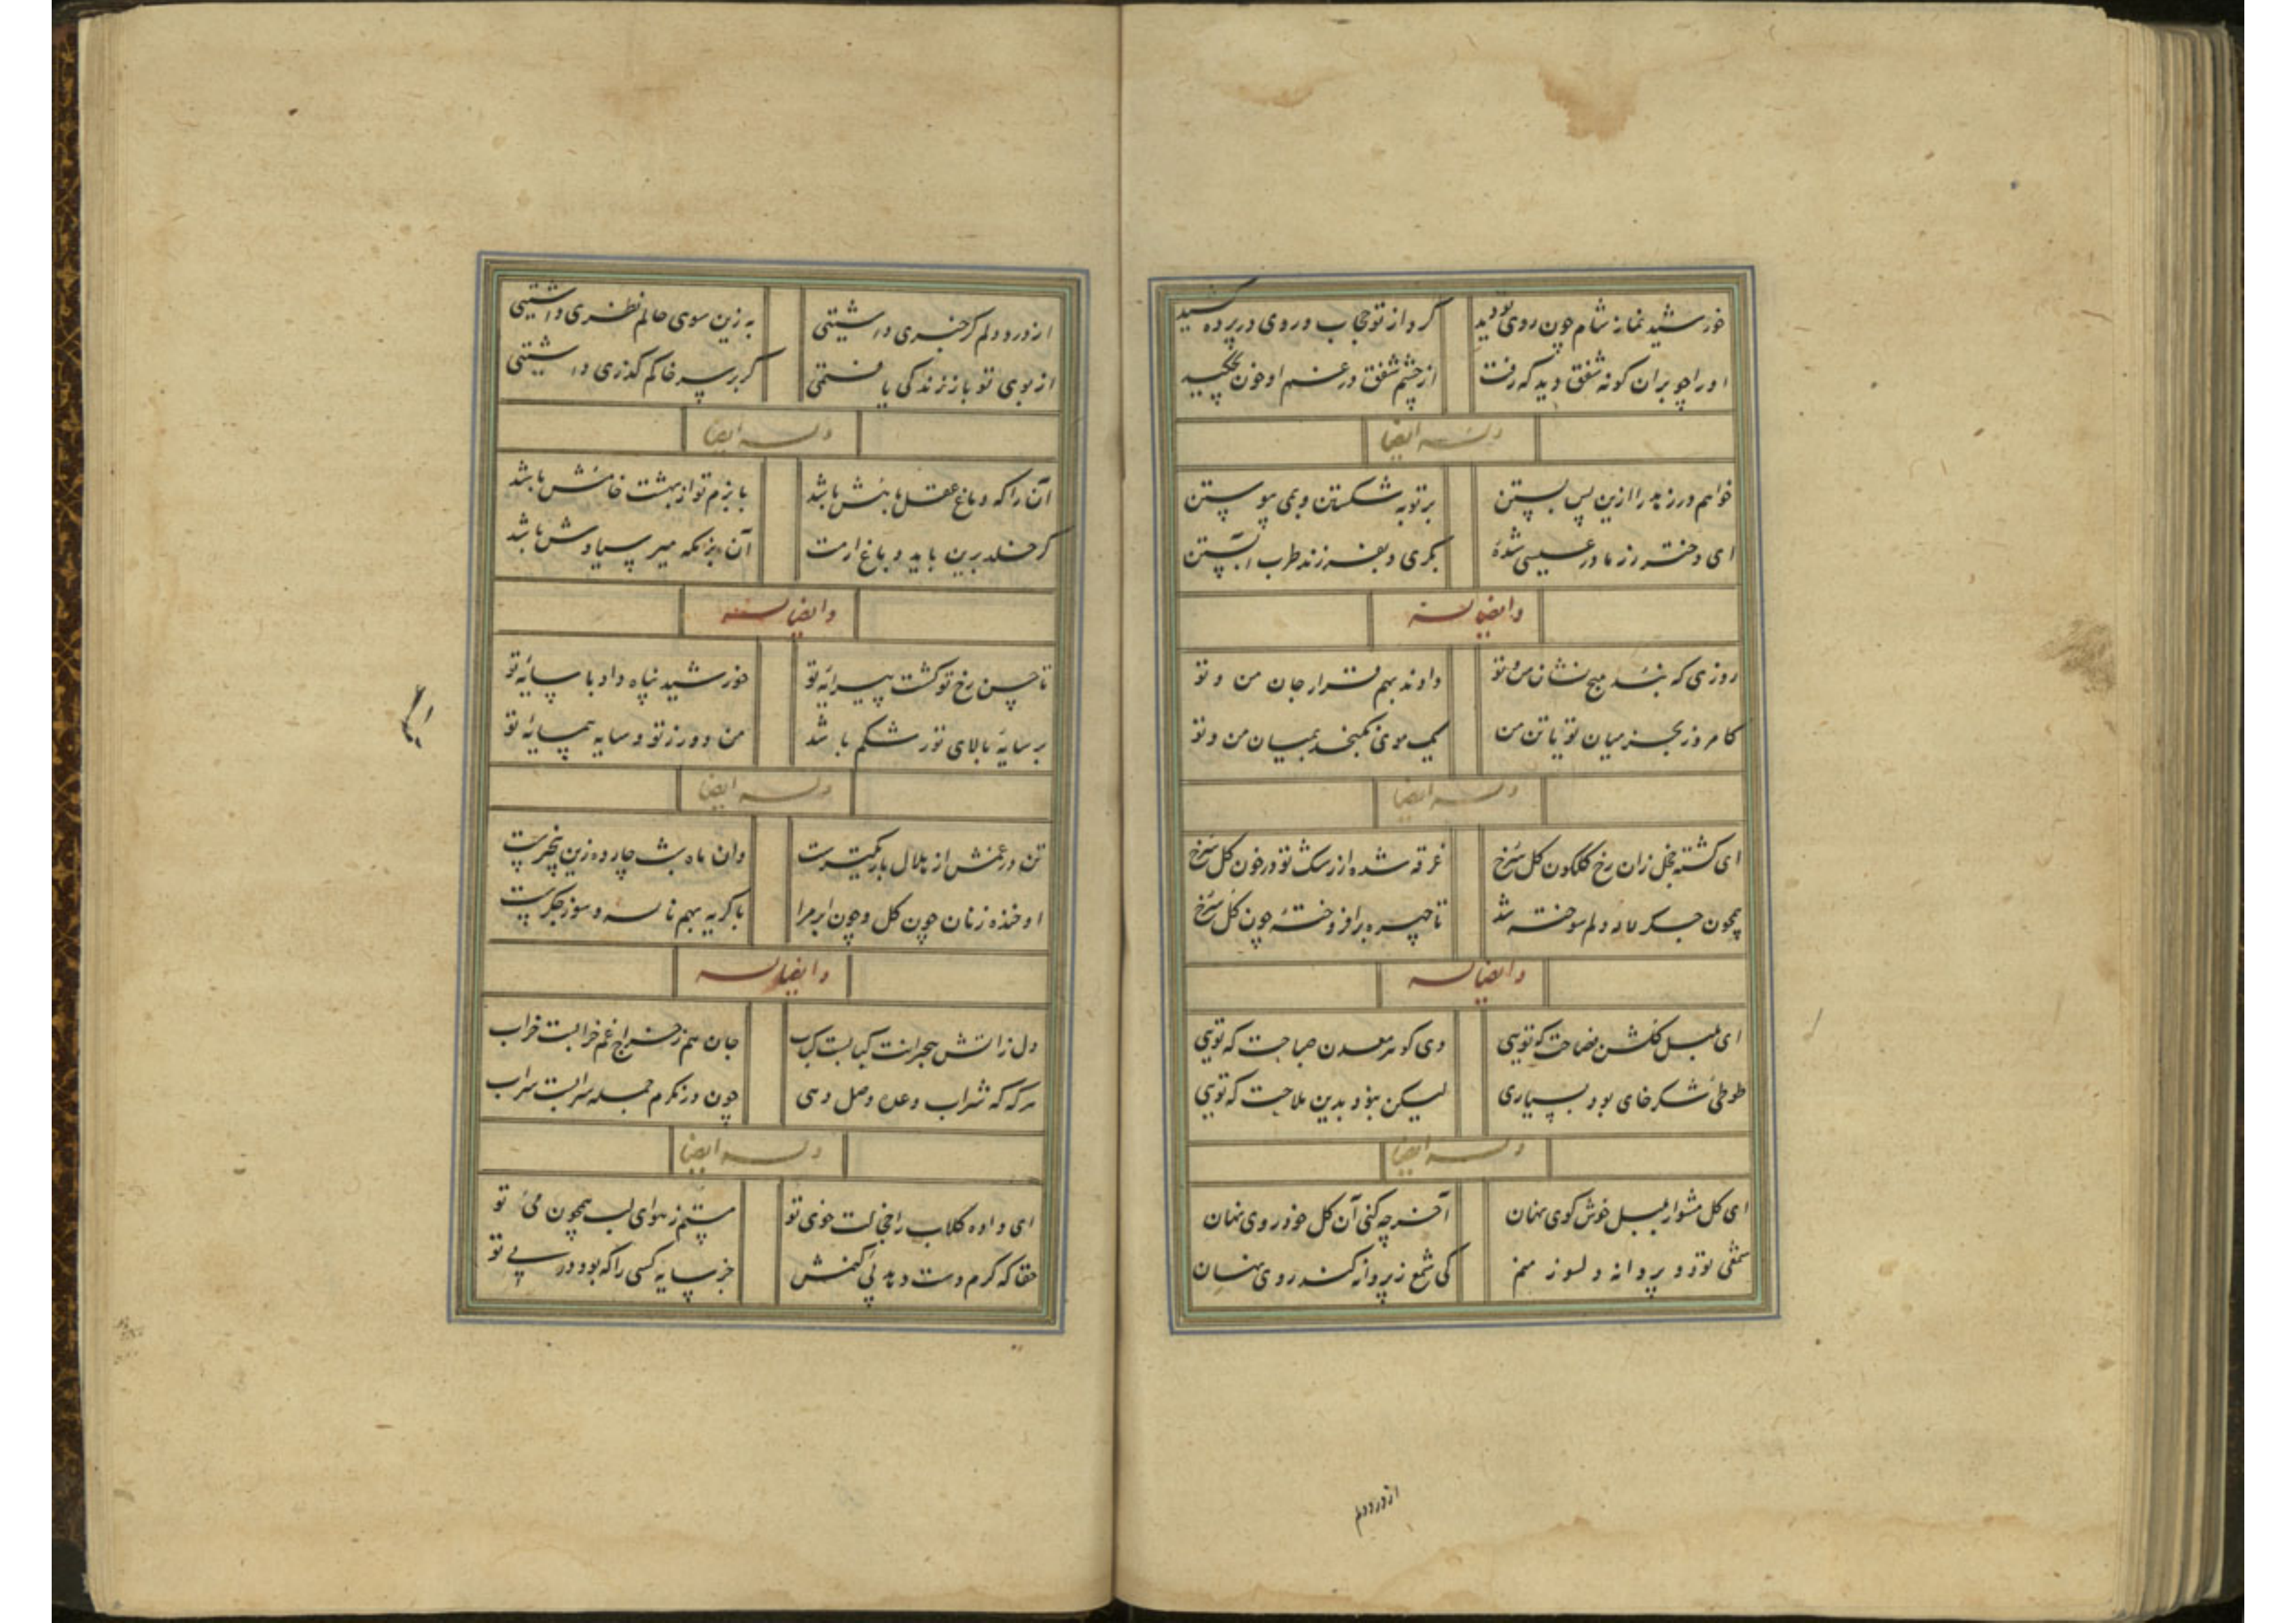 خورشید نماز شام چون روی تو دید کرد از تو حجاب و روی در پرده کشید
او را چو بران کونه شفق دید که رفت از چشم شفق در غم او خون بچکید
وله ایضا
خواهم در زهد را ازین پس بستن بر توبه شکستن و بمی پیوستن
ای دختر رز مادر عیسی شدهٔ بکری و بفرزند طرب آبستن
وایضا له
روزی که نبد هیچ نشان من و تو دادند بهم قرار جان من و تو
کامروز بجز میان تو یا تن من یک موی نکنجد بمیان من و تو
وله ایضا
ای کشته خجل زان رخ کلکون کل سرخ غرقه شده از رشک تو در خون کل سرخ
همچون جکر لاله دلم سوخته شد تا چهره برافروختهٔ چون کل سرخ
وایضا له
ای بلبل کلشن فصاحت که تویی وی کوهر معدن صباحت که تویی
طوطی شکرخای بود بسیاری لیکن نبود بدین ملاحت که تویی
وله ایضا
ای کل مشو از بلبل خوش کوی نهان آخر چه کنی آن کل خودروی نهان
شمعی تو و پروانه دلسوز منم کی شمع ز پروانه کند روی نهان
از درد دلم
از درد دلم کر خبری داشتیی به زین سوی حالم نظری داشتیی
از بوی تو باز زندکی یافتمی کر بر سر خاکم کذری داشتیی
وله ایضا
آن را که دماغ عقل باهش باشد با بزم تو از بهشت خامش باشد
کر خلد برین باید و باغ ارمت آن بزمکه میر سیاوش باشد
وایضا له
تا حسن رخ تو کشت پیرایهٔ تو خورشید پناه داد با سایهٔ تو
بر سایهٔ بالای تو رشکم باشد من دور ز تو و سایه همسایهٔ تو
وله ایضا
تن در غمش از هلال باریکترست وان ماه شب چارده زین بیخبرست
او خنده زنان چون کل و چون ابر مرا با کریه بهم ناله و سوز جکرست
وایضا له
دل ز اتش هجرانت کبابست کباب جان هم ز خراج غم خرابست خراب
هرکه که شراب وعده وصل دهی چون درنکرم جمله سرابست سراب
وله ایضا
ای داده کلاب را خجالت خوی تو مستم ز هوای لب همچون می تو
حقا که کرم دست دهد پی کنمش جز سایه کسی را که بود در پی تو